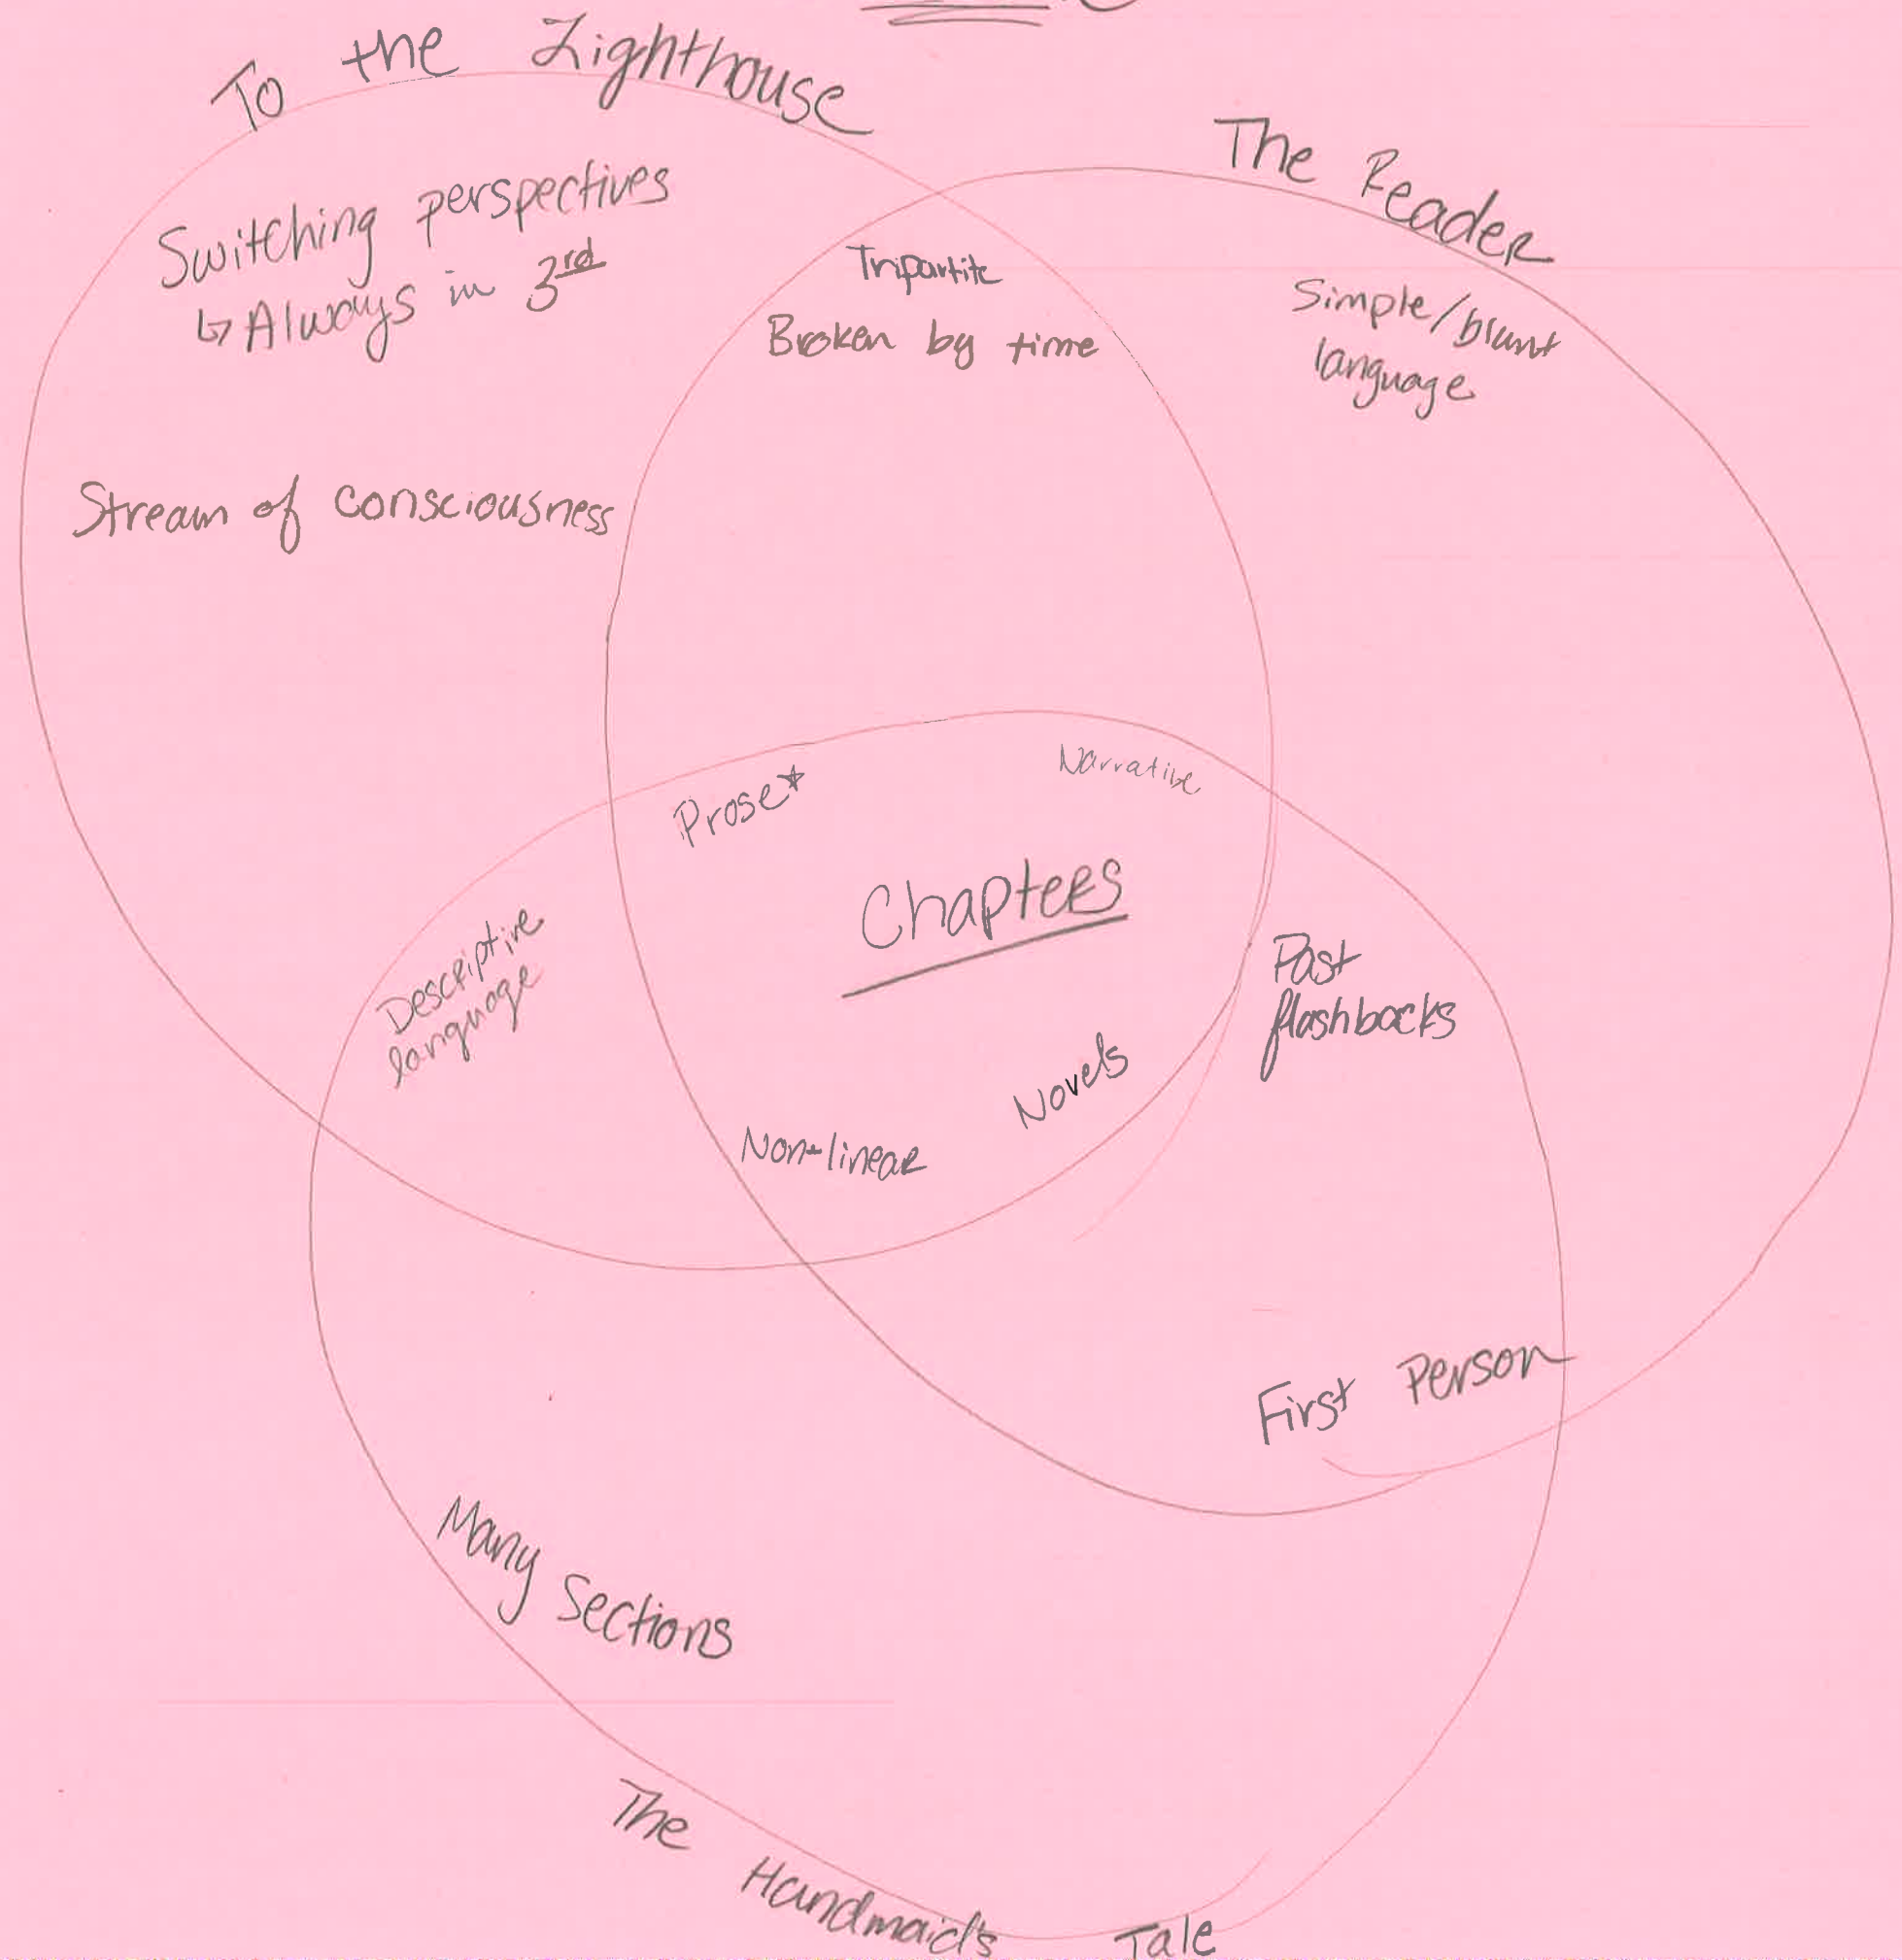 To the Lighthouse
The Reader
Switching perspectives
↳ Always in 3rd
Stream of consciousness
Tripartite
Broken by time
Simple/blunt
language
Prose*
Narrative
Chapters
Descriptive
language
Past
flashbacks
Novels
Non-linear
First Person
Many Sections
The Handmaid's Tale